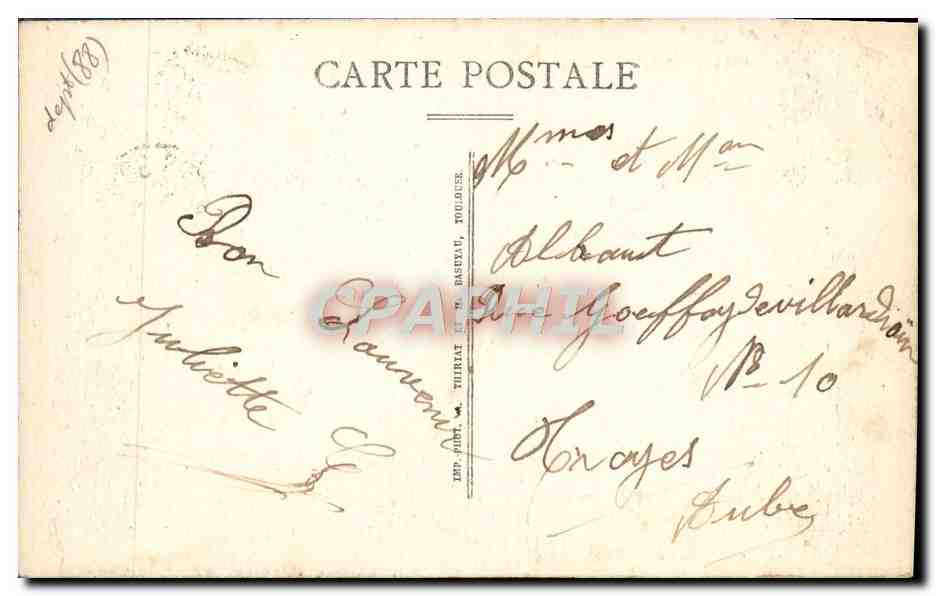 dept (88)
CARTE POSTALE
Bon
Souvenir
Juliette
IMP.-PHOT. A. THIRIAT & M. BASUYAU, TOULOUSE.
Mmes et Man
Rue Goeffoy de villarDoin
N° 10
Troyes
Aube
CPAPHIL